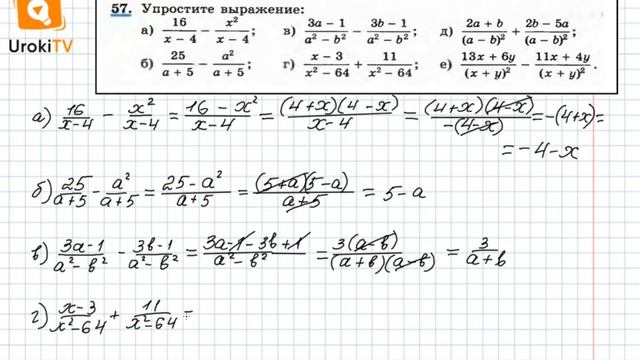 UrokiTV
57. Упростите выражение:
а) 16/(x − 4) − x²/(x − 4); в) (3a − 1)/(a² − b²) − (3b − 1)/(a² − b²); д) (2a + b)/(a − b)² + (2b − 5a)/(a − b)²;
б) 25/(a + 5) − a²/(a + 5); г) (x − 3)/(x² − 64) + 11/(x² − 64); е) (13x + 6y)/(x + y)² − (11x + 4y)/(x + y)².
а) 16/(x−4) − x²/(x−4) = (16 − x²)/(x−4) = (4+x)(4−x)/(x−4) = (4+x)(4−x)/−(4−x) = −(4+x) =
= −4−x
б) 25/(a+5) − a²/(a+5) = (25−a²)/(a+5) = (5+a)(5−a)/(a+5) = 5−a
в) (3a−1)/(a²−b²) − (3b−1)/(a²−b²) = (3a−1−3b+1)/(a²−b²) = 3(a−b)/(a+b)(a−b) = 3/(a+b)
г) (x−3)/(x²−64) + 11/(x²−64) =